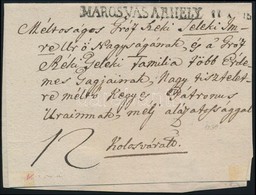 MAROSVÁSÁRHELY
Méltoságos Gróf Széki Teleki Im-
re Ur ő Nagyságának, és a Gróf
Széki Teleki Familia több Érde-
mes Tagjainak, Nagy tisztelet-
re méltó Kegyes Pátronus
Urainnak, mélj alázatossággal
12
Kolosvárató.